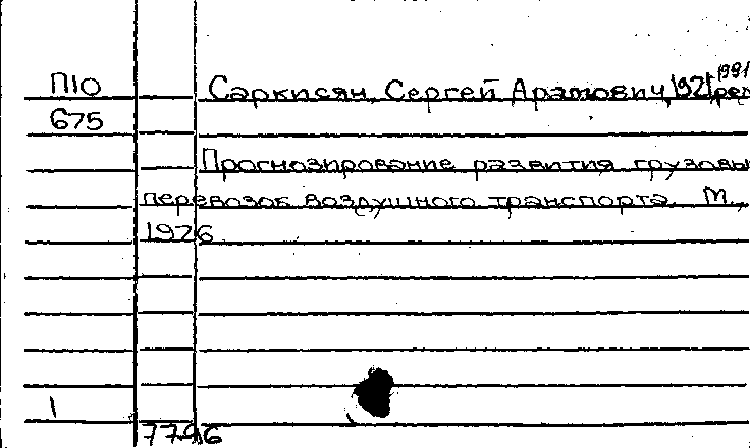 1991
П10 Саркисян, Сергей Арамович, 1921 ред
675
Прогнозирование развития грузовы
перевозок воздушного транспорта. М.,
1926
1
7796